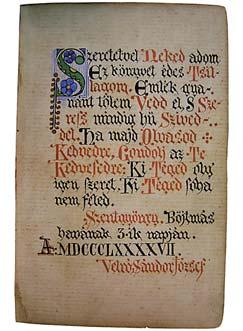 Szeretetvel Neked adom
Ez könyvet édes Tsil-
lagom. Emlék gya-
nánt tőlem Vedd el, S Sze-
ress mindig hű Szived-
del. Ha majd Olvasod
Kedvedre, Gondolj az Te
Kedvesedre: Ki Téged oly
igen szeret. Ki Téged soha
nem feled.
Szentgyörgy, Böjtmás
havának 3-ik napján.
A. MDCCCLXXXXVII.
Velső Sándor József